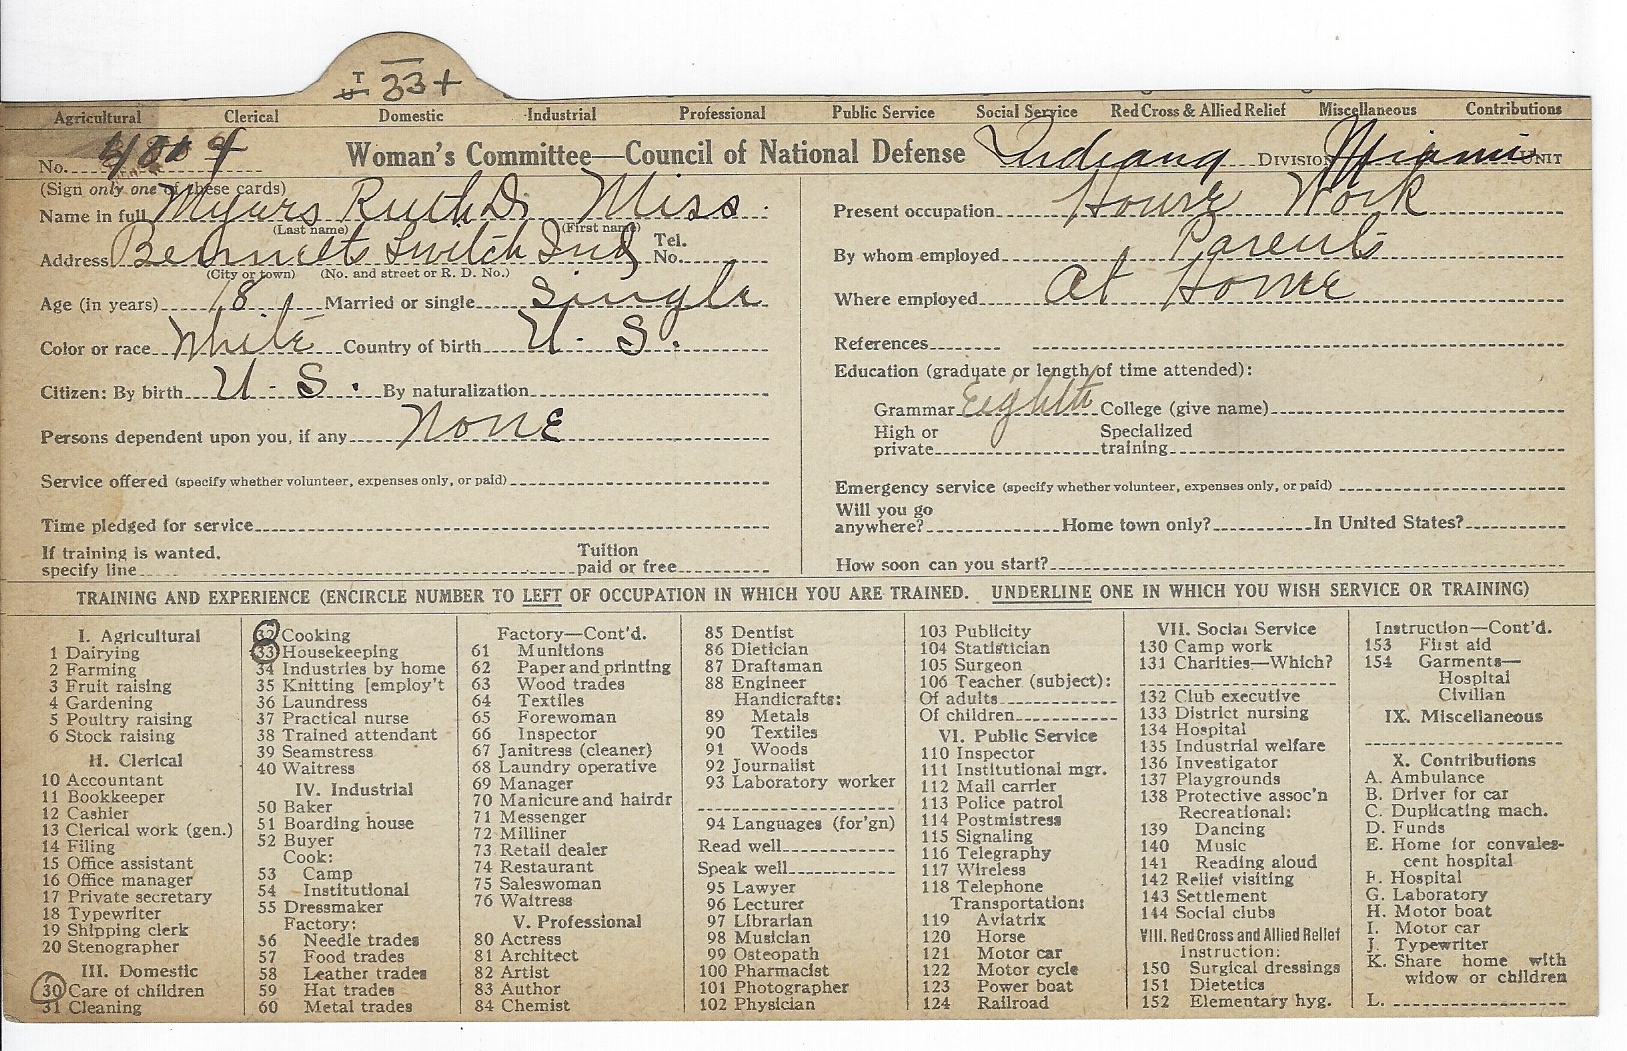 T 33+
Agricultural Clerical Domestic Industrial Professional Public Service Social Service Red Cross & Allied Relief Miscellaneous Contributions
No. Woman's Committee—Council of National Defense Indiana DIVISION Miami UNIT
(Sign only one of these cards)
Name in full Myers Ruth D. Miss
(Last name) (First name)
Address Bennetts Switch Ind Tel. No.
(City or town) (No. and street or R. D. No.)
Age (in years) 18 Married or single Single
Color or race White Country of birth U. S.
Citizen: By birth U. S. By naturalization
Persons dependent upon you, if any None
Service offered (specify whether volunteer, expenses only, or paid)
Time pledged for service
If training is wanted, Tuition
specify line paid or free
Present occupation House Work
By whom employed Parents
Where employed At Home
References
Education (graduate or length of time attended):
Grammar Eighth College (give name)
High or Specialized
private training
Emergency service (specify whether volunteer, expenses only, or paid)
Will you go
anywhere? Home town only? In United States?
How soon can you start?
TRAINING AND EXPERIENCE (ENCIRCLE NUMBER TO LEFT OF OCCUPATION IN WHICH YOU ARE TRAINED. UNDERLINE ONE IN WHICH YOU WISH SERVICE OR TRAINING)
I. Agricultural
1 Dairying
2 Farming
3 Fruit raising
4 Gardening
5 Poultry raising
6 Stock raising
II. Clerical
10 Accountant
11 Bookkeeper
12 Cashier
13 Clerical work (gen.)
14 Filing
15 Office assistant
16 Office manager
17 Private secretary
18 Typewriter
19 Shipping clerk
20 Stenographer
III. Domestic
30 Care of children
31 Cleaning
32 Cooking
33 Housekeeping
34 Industries by home
35 Knitting [employ't
36 Laundress
37 Practical nurse
38 Trained attendant
39 Seamstress
40 Waitress
IV. Industrial
50 Baker
51 Boarding house
52 Buyer
Cook:
53 Camp
54 Institutional
55 Dressmaker
Factory:
56 Needle trades
57 Food trades
58 Leather trades
59 Hat trades
60 Metal trades
Factory—Cont'd.
61 Munitions
62 Paper and printing
63 Wood trades
64 Textiles
65 Forewoman
66 Inspector
67 Janitress (cleaner)
68 Laundry operative
69 Manager
70 Manicure and hairdr
71 Messenger
72 Milliner
73 Retail dealer
74 Restaurant
75 Saleswoman
76 Waitress
V. Professional
80 Actress
81 Architect
82 Artist
83 Author
84 Chemist
85 Dentist
86 Dietician
87 Draftsman
88 Engineer
Handicrafts:
89 Metals
90 Textiles
91 Woods
92 Journalist
93 Laboratory worker
94 Languages (for'gn)
Read well
Speak well
95 Lawyer
96 Lecturer
97 Librarian
98 Musician
99 Osteopath
100 Pharmacist
101 Photographer
102 Physician
103 Publicity
104 Statistician
105 Surgeon
106 Teacher (subject):
Of adults
Of children
VI. Public Service
110 Inspector
111 Institutional mgr.
112 Mail carrier
113 Police patrol
114 Postmistress
115 Signaling
116 Telegraphy
117 Wireless
118 Telephone
Transportation:
119 Aviatrix
120 Horse
121 Motor car
122 Motor cycle
123 Power boat
124 Railroad
VII. Social Service
130 Camp work
131 Charities—Which?
132 Club executive
133 District nursing
134 Hospital
135 Industrial welfare
136 Investigator
137 Playgrounds
138 Protective assoc'n
Recreational:
139 Dancing
140 Music
141 Reading aloud
142 Relief visiting
143 Settlement
144 Social clubs
VIII. Red Cross and Allied Relief
Instruction:
150 Surgical dressings
151 Dietetics
152 Elementary hyg.
Instruction—Cont'd.
153 First aid
154 Garments—
Hospital
Civilian
IX. Miscellaneous
X. Contributions
A. Ambulance
B. Driver for car
C. Duplicating mach.
D. Funds
E. Home for convales-
cent hospital
F. Hospital
G. Laboratory
H. Motor boat
I. Motor car
J. Typewriter
K. Share home with
widow or children
L.